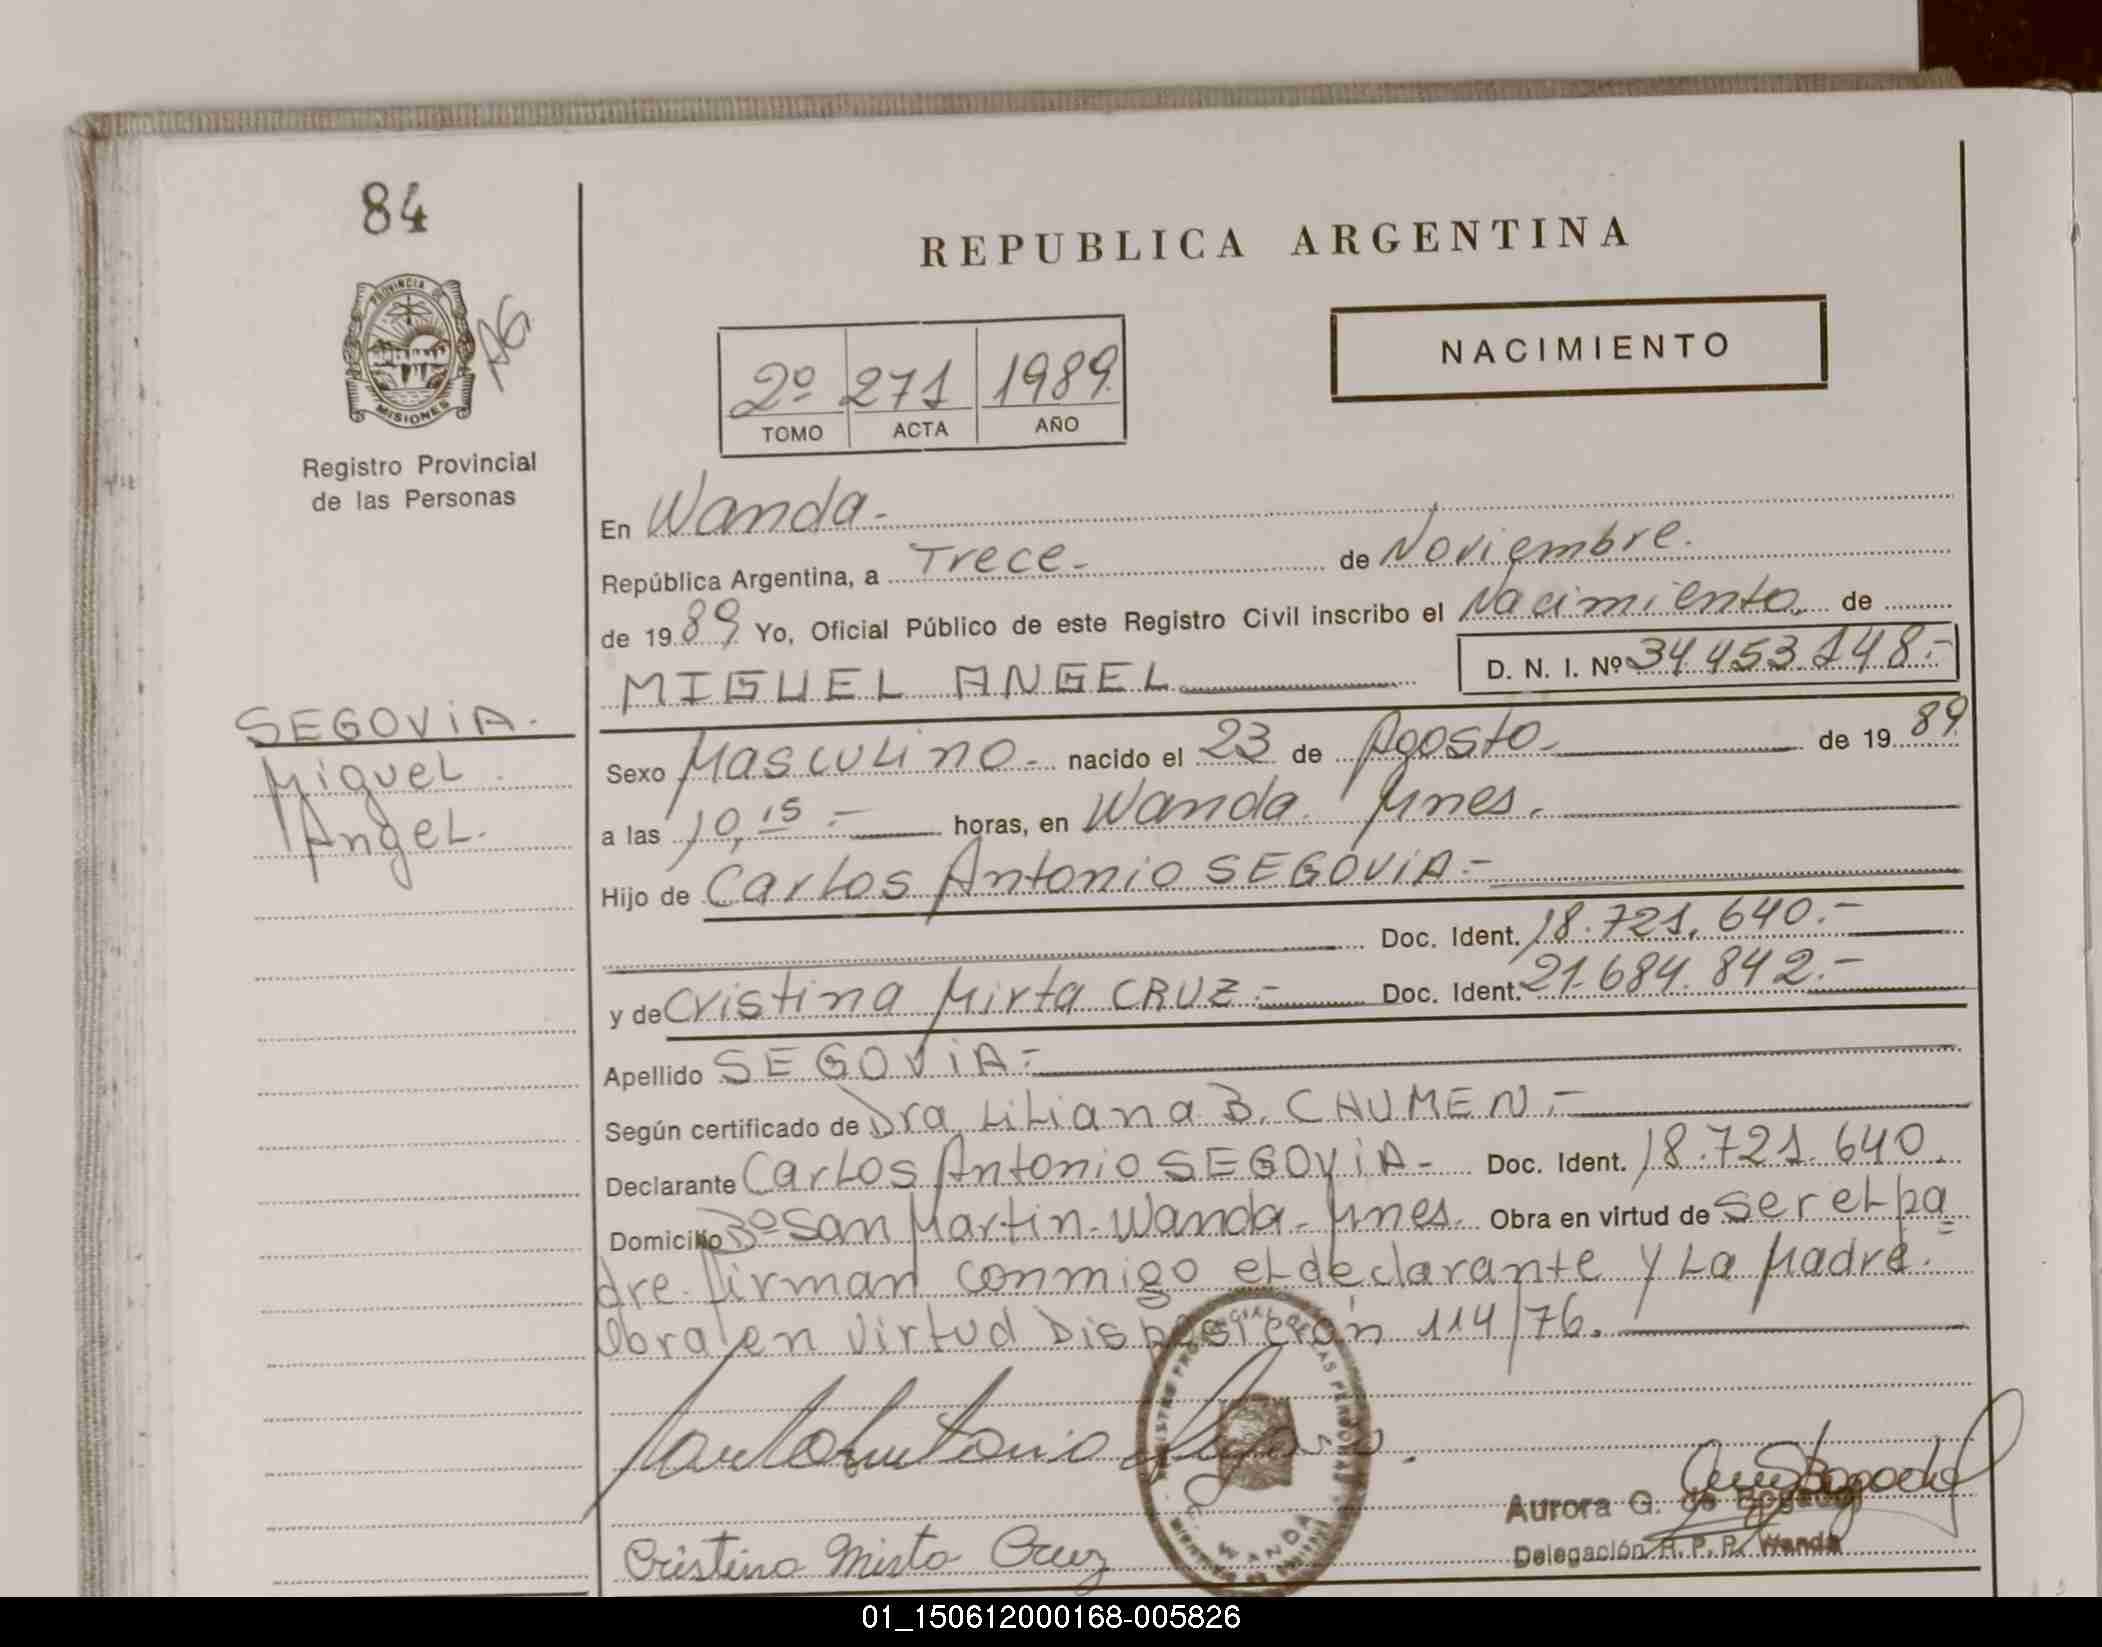 84
PROVINCIA DE
MISIONES
AG
Registro Provincial
de las Personas
REPUBLICA ARGENTINA
2º 271 1989.
TOMO ACTA AÑO
NACIMIENTO
En Wanda.-
República Argentina, a Trece.- de Noviembre.
de 1989 Yo, Oficial Público de este Registro Civil inscribo el Nacimiento. de
MIGUEL ANGEL D. N. I. Nº 34.453.148.-
SEGOVIA.
Miguel
Angel.
Sexo Masculino.- nacido el 23 de Agosto.- de 1989
a las 10,15.- horas, en Wanda. Mnes.
Hijo de Carlos Antonio SEGOVIA.-
Doc. Ident. 18.721.640.-
y de Cristina Mirta CRUZ.- Doc. Ident. 21.684.842.-
Apellido SEGOVIA.-
Según certificado de Dra. Liliana B. CHUMEN.-
Declarante Carlos Antonio SEGOVIA- Doc. Ident. 18.721.640.
Domicilio Bº San Martin-Wanda-Mnes. Obra en virtud de ser el pa=
dre. Firman conmigo el declarante y La Madre.
Obra en Virtud Disposición 114/76.
Cristina Mirta Cruz
Aurora G. de
Delegación R. P. P. Wanda
WANDA
01_150612000168-005826